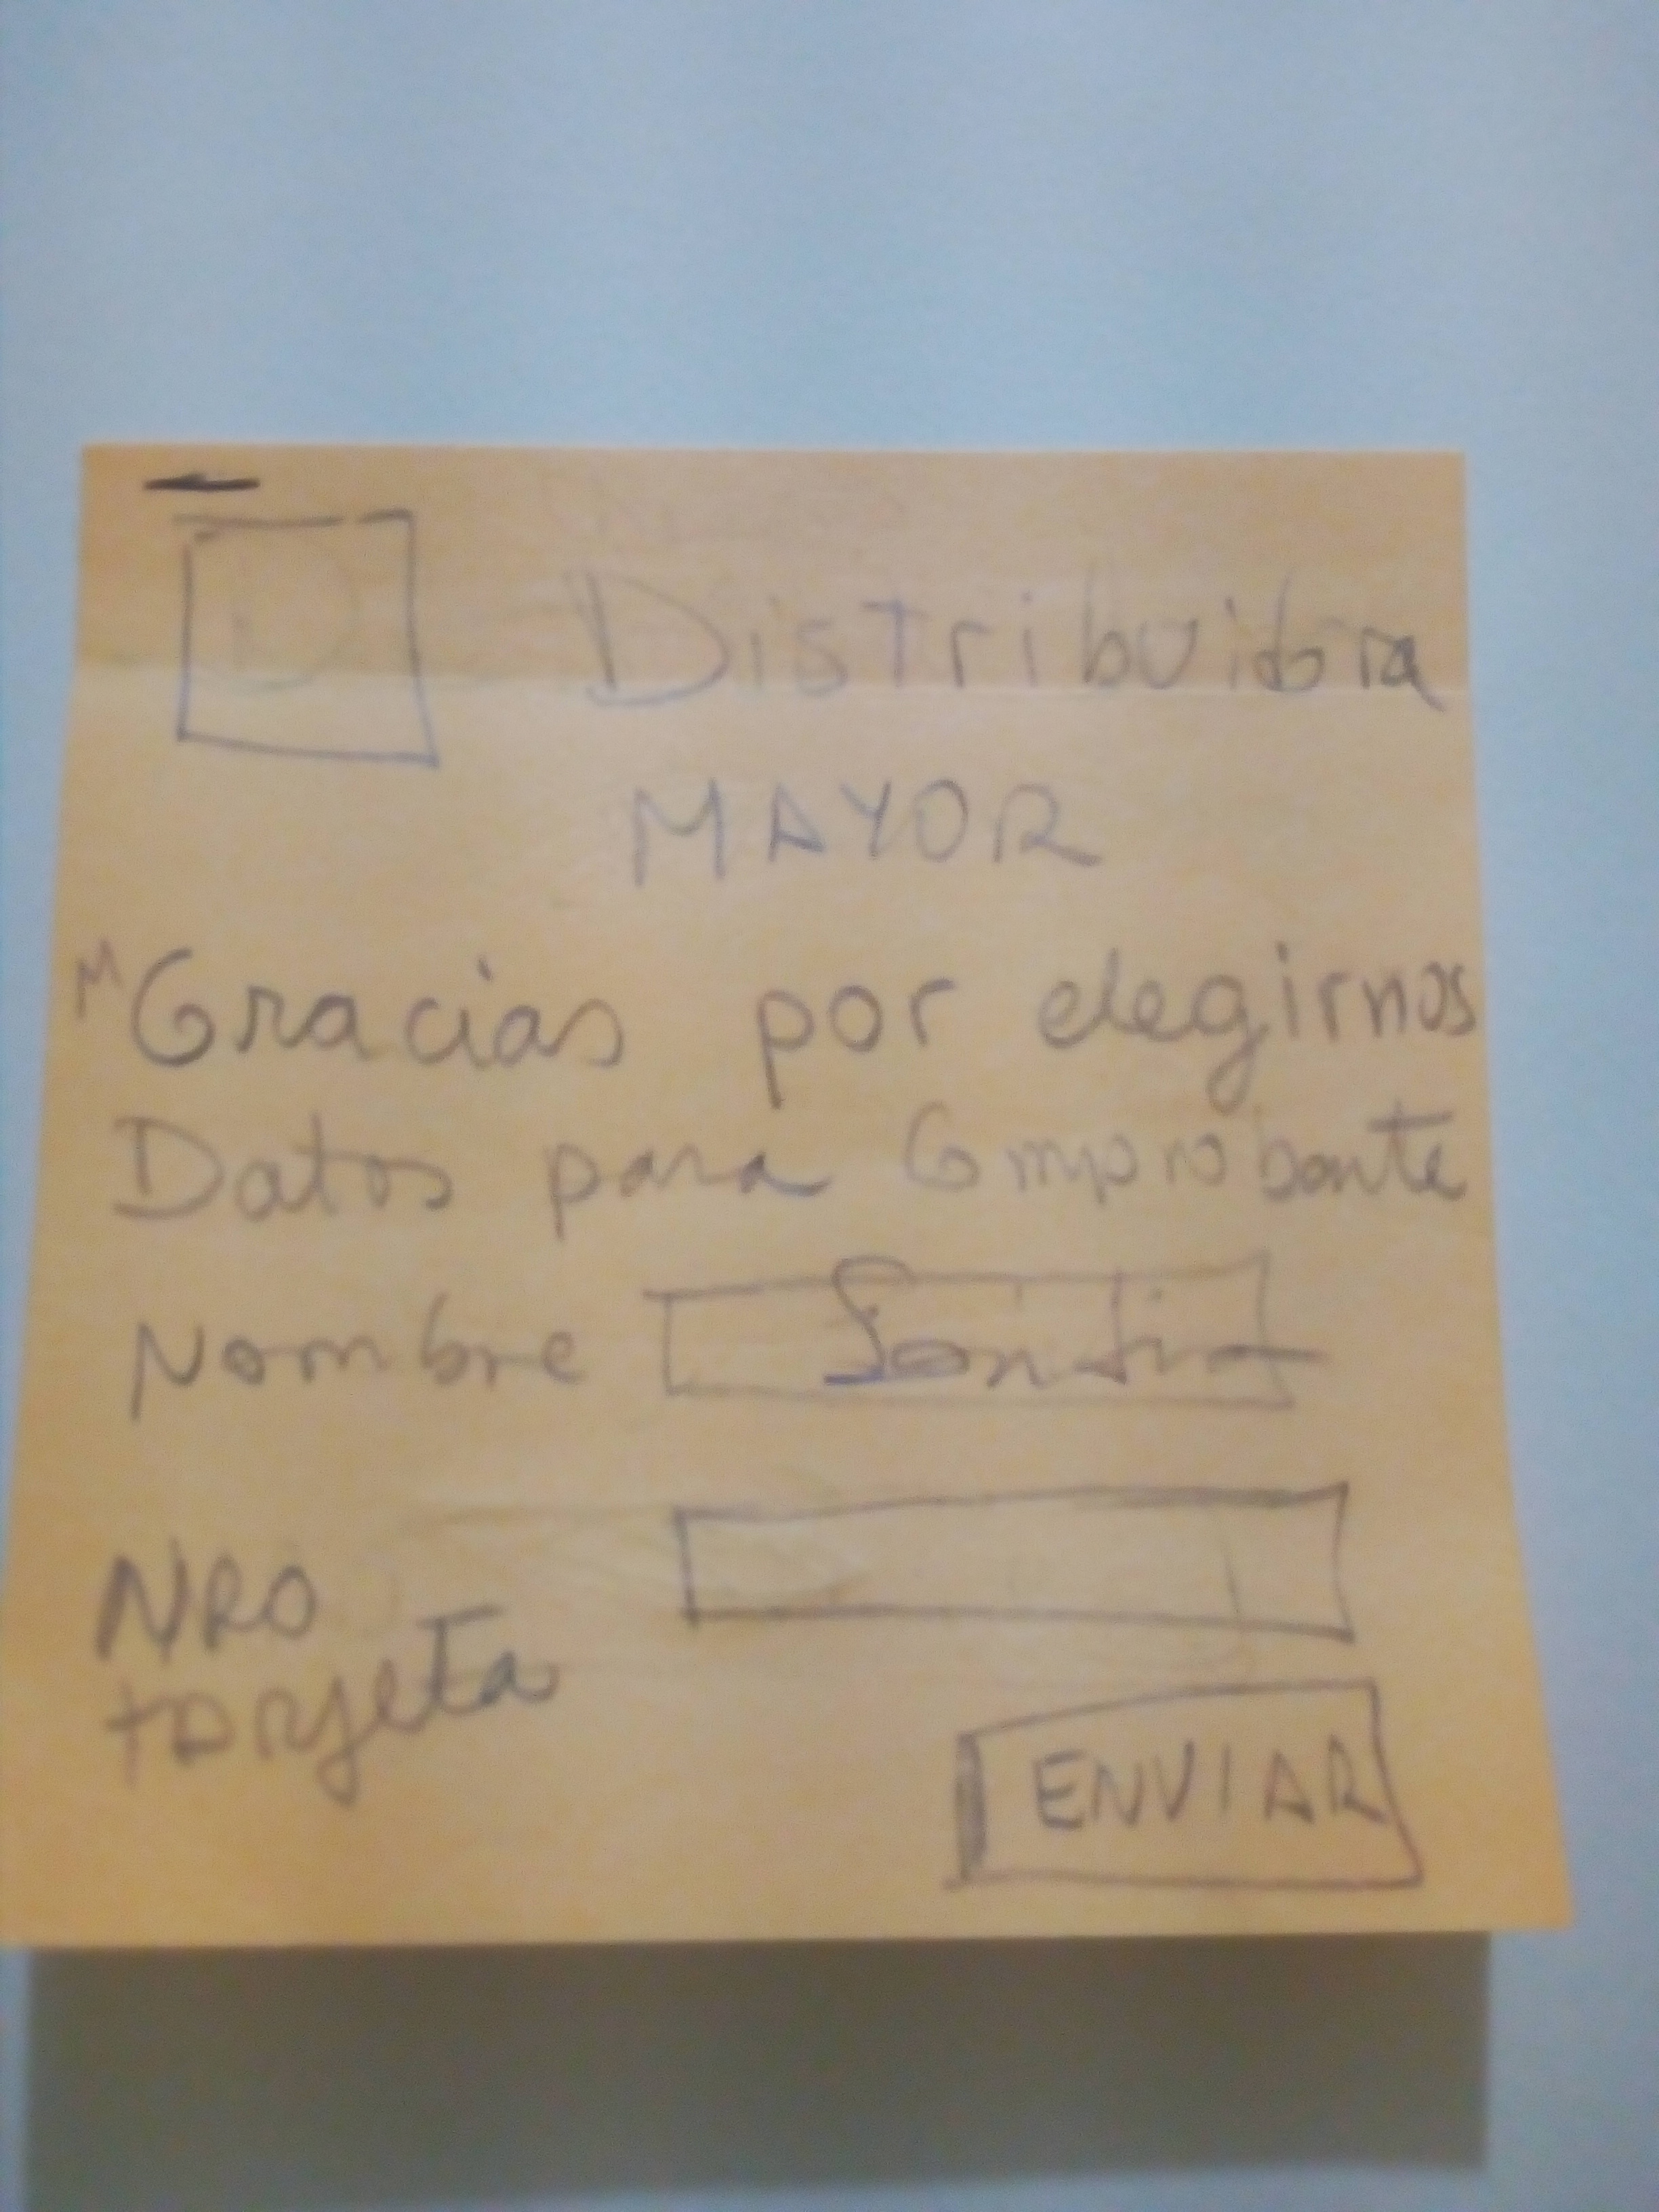 Distribuidora
MAYOR
Gracias por elegirnos
Datos para Comprobante
Nombre
NRO
tarjeta
ENVIAR